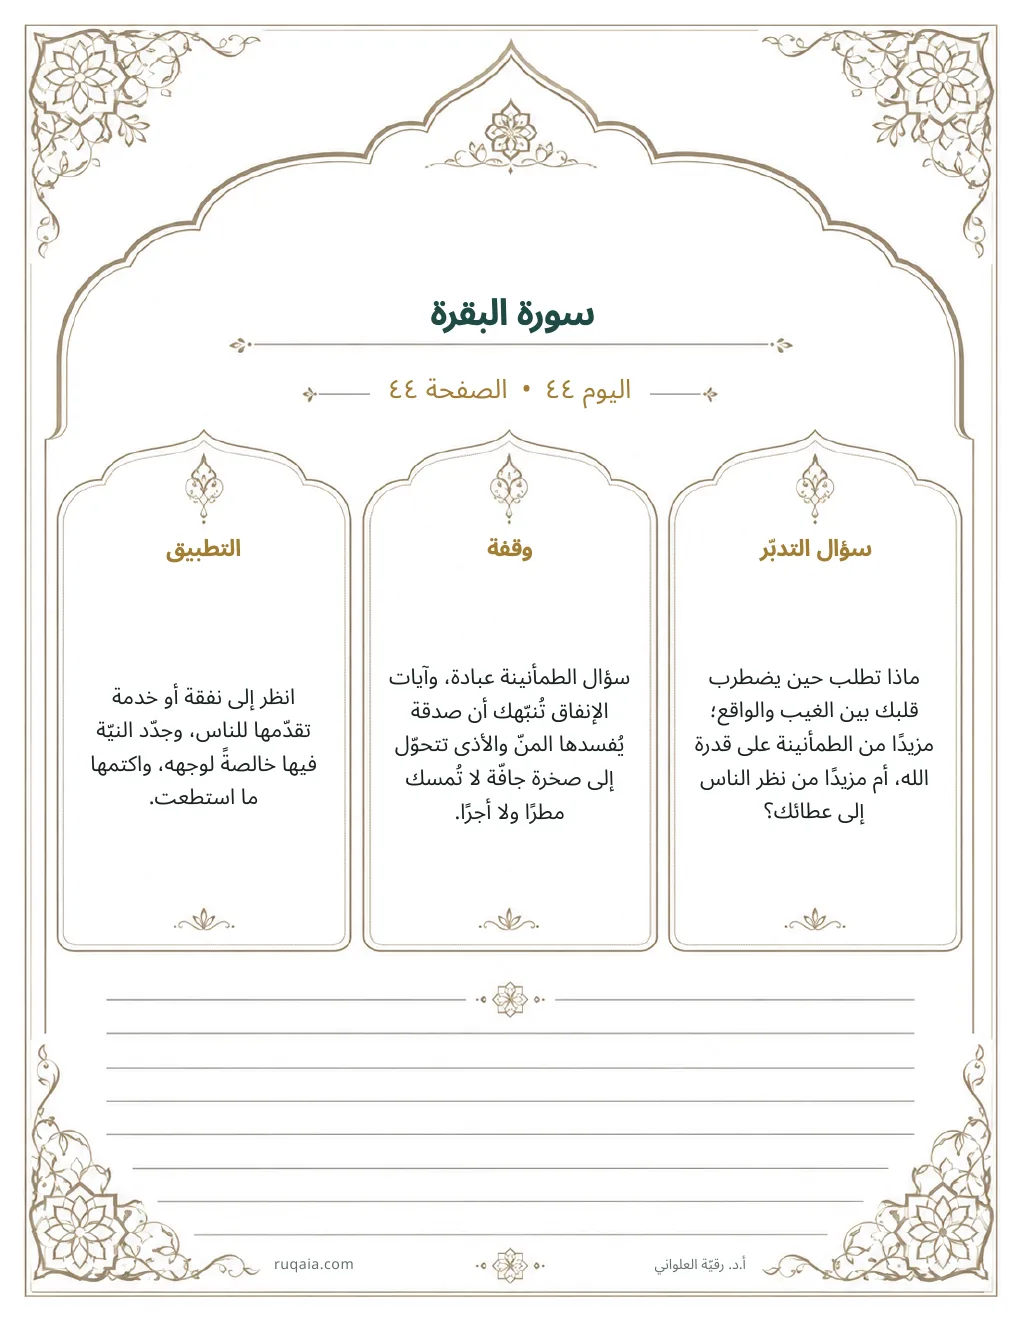 سورة البقرة
اليوم ٤٤ • الصفحة ٤٤
سؤال التدبّر
ماذا تطلب حين يضطرب
قلبك بين الغيب والواقع؛
مزيدًا من الطمأنينة على قدرة
الله، أم مزيدًا من نظر الناس
إلى عطائك؟
وقفة
سؤال الطمأنينة عبادة، وآيات
الإنفاق تُنبّهك أن صدقة
يُفسدها المنّ والأذى تتحوّل
إلى صخرة جافّة لا تُمسك
مطرًا ولا أجرًا.
التطبيق
انظر إلى نفقة أو خدمة
تقدّمها للناس، وجدّد النيّة
فيها خالصةً لوجهه، واكتمها
ما استطعت.
أ.د. رقيّة العلواني
ruqaia.com